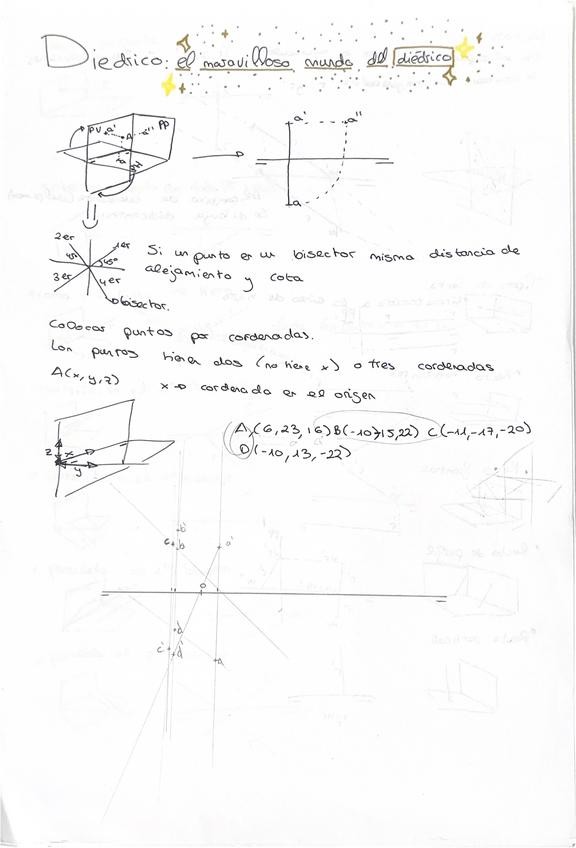 Diedrico: el maravilloso mundo del diédrico
PV a' A a'' PP
a PH
a' a''
a
2er 1er
45° 45°
3er 4er
bisector.
Si un punto en un bisector misma distancia de
alejamiento y cota
Colocar puntos por cordenadas.
Lon punros tienen dos (no tiene x) o tres cordenadas
A(x,y,z) x→ cordenada en el origen
z x
y
A(6, 23, 16) B(-10,15,22) C(-11,-17,-20)
D(-10,13,-22)
b'
c b a'
o
d
c' d' A